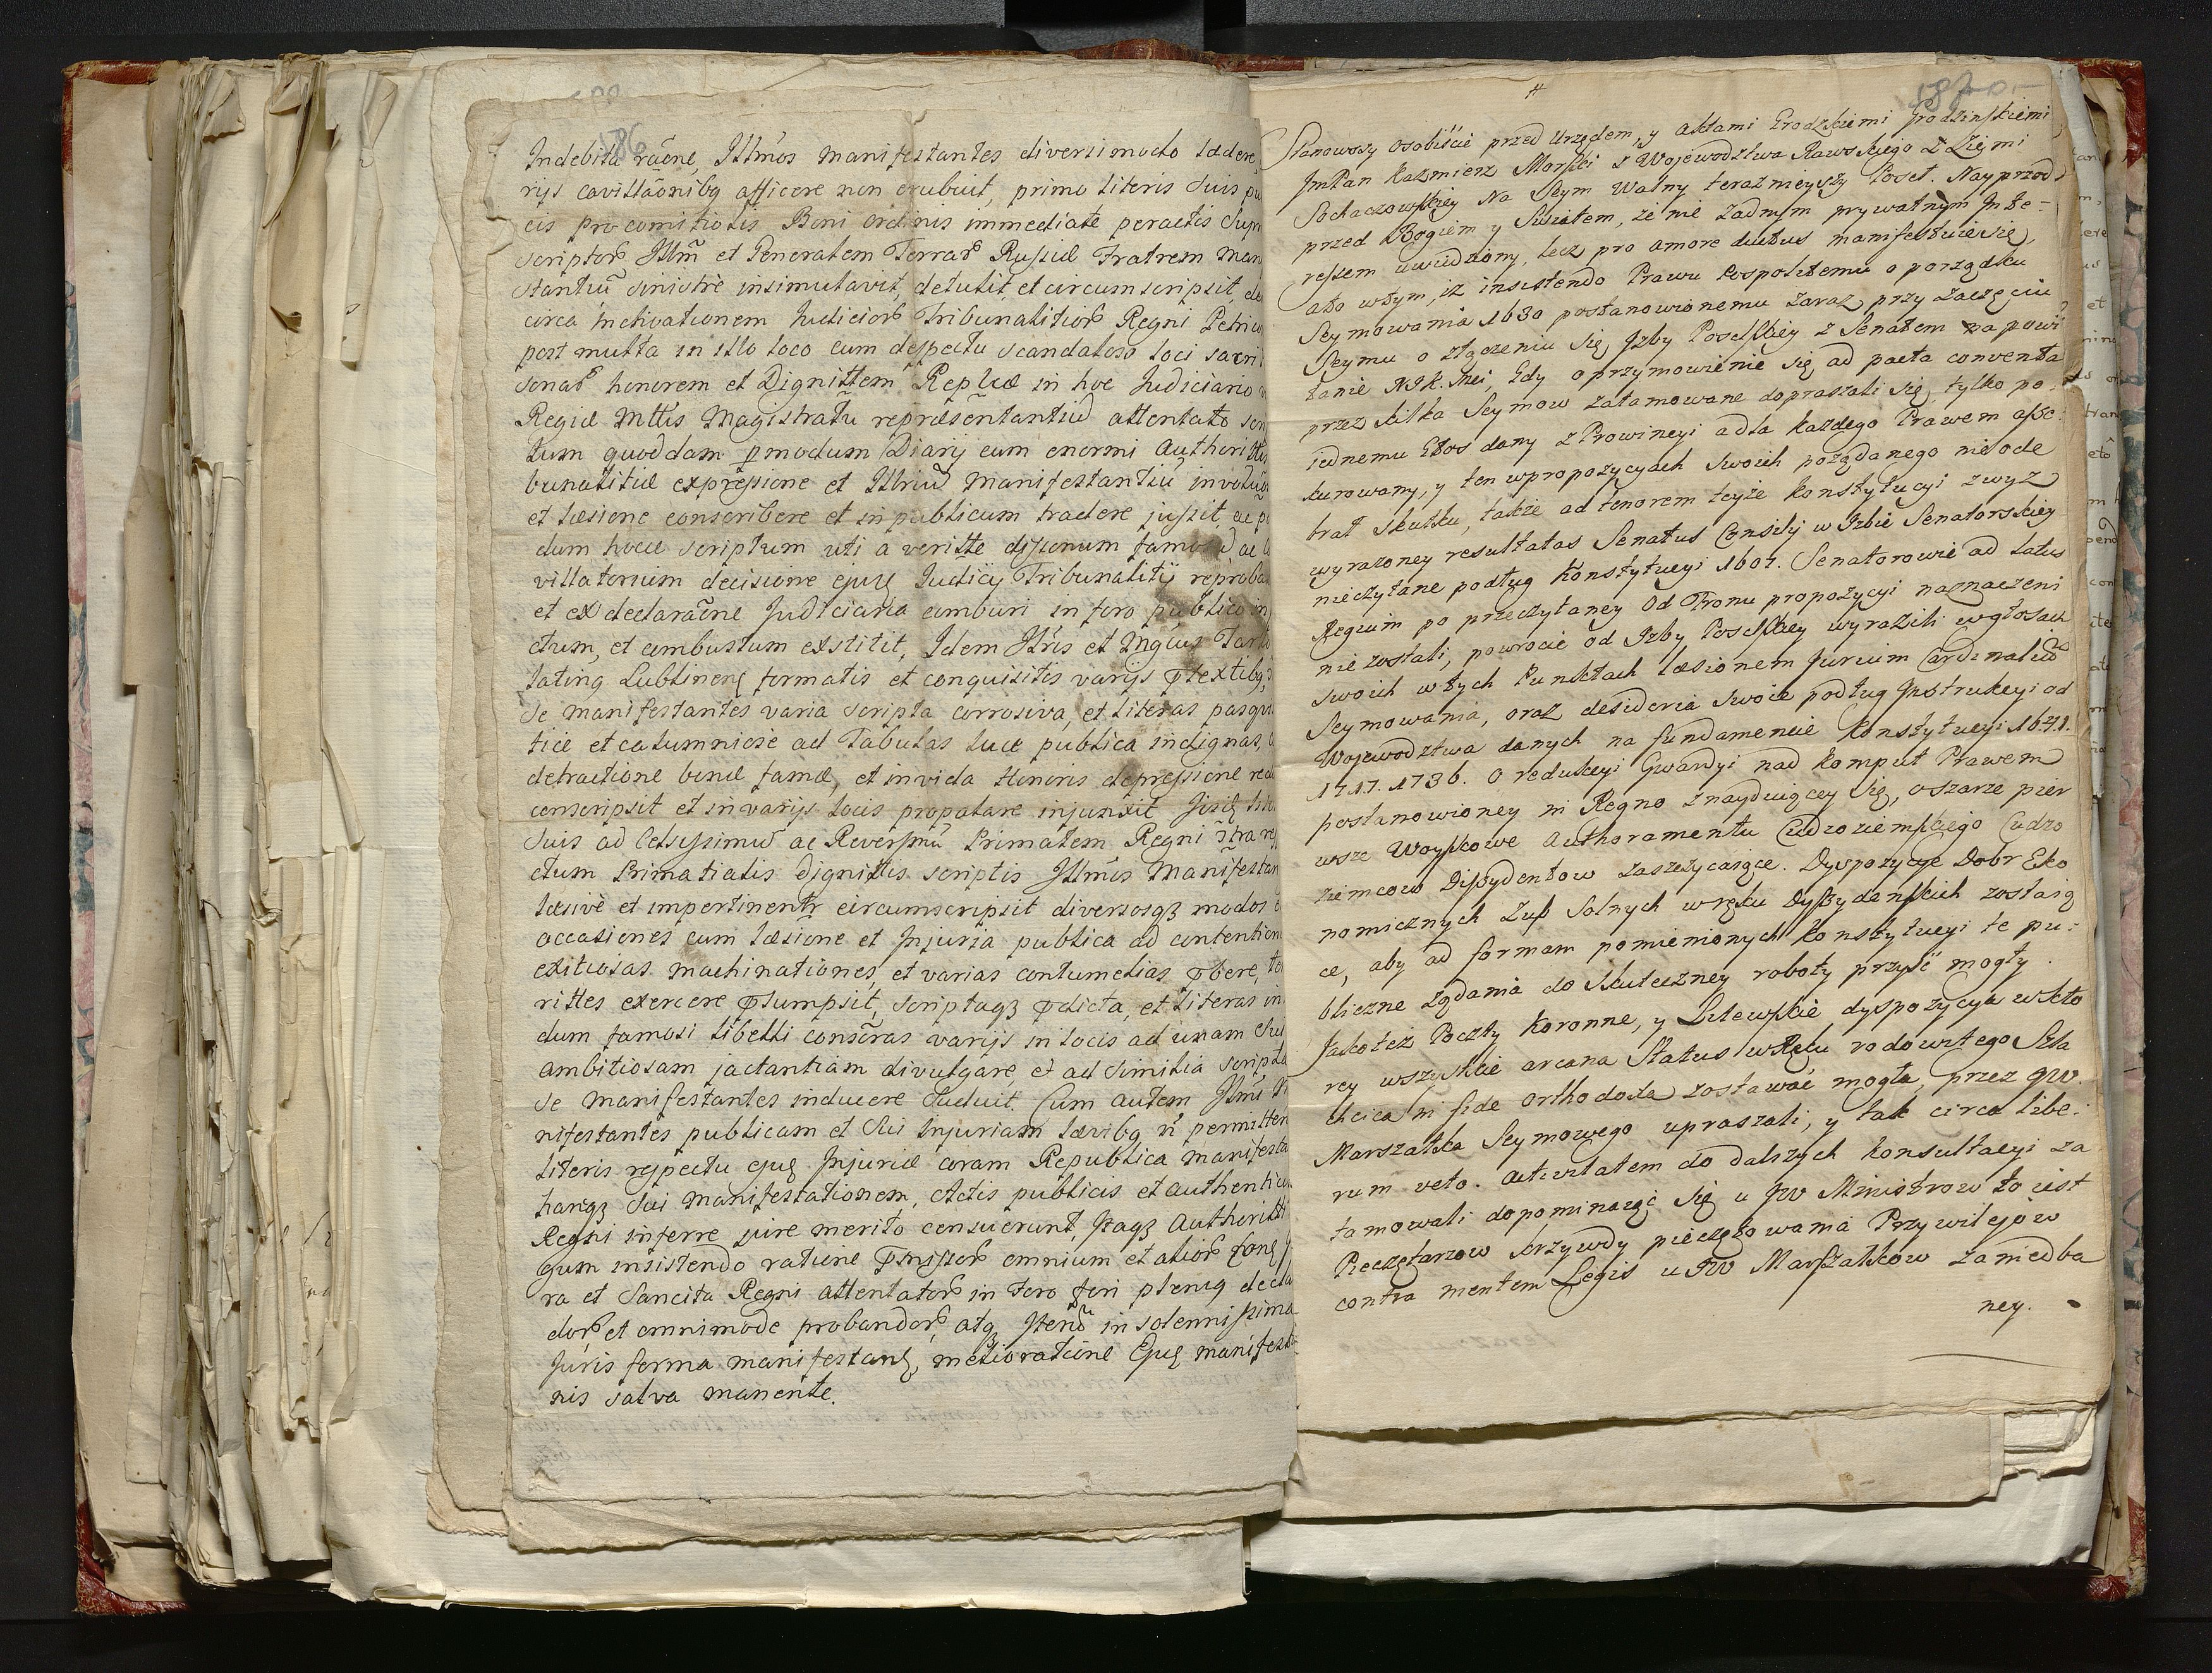 186
Indebita rãone, Illmos manifestantes diversimodo lædere,
rijs cavillãonibq afficere non erubuit, primo literis suis pu
cis pro comitiolis Boni ordinis immediate peractis Supr
scriptor Illm et Generalem Terrar Russiæ Fratrem Man
stantiu sinistrè insimulavit, detulit, et circumscripsit, de
circa motivationem Judicior Tribunalitior Regni Petrico
post multa in illo loco cum despectu scandaloso loci sacri
sonar honorem et Dignittem Reiplcæ in hoc Judiciario
Regiæ Mttis Magistratu repræsentantiu attentato scri
tum quoddam p modum Diarij cum enormi Authoritt
bunalitiæ expressione et Illriu Manifestantiu involu
et læsione conscribere et in publicum tradere jussit,
dum hocce scriptum uti a veritte dissonum famosu ac
villatorium decisione ejusq Judicij Tribunalitij reproba
et ex declarãone Judiciaria comburi in foro publico in
ctum, et combustum exstitit, Idem Illris et Mgcus Tar
latinq Lublinens formatis et conquisitis varijs ptextibq
se manifestantes varia scripta corrosiva, et literas pasqui
ticè et calumniosè ad Tabulas luce publica indignas,
detractione bonæ famæ, et invida Honoris depressione
conscripsit et in varijs locis propalare injunxit
suis ad Celsissimu ac Reverssmu Primatem Regni
ctum Primatialis Dignittis scriptis Illmos Manifestan
læsivè et impertinentr circumscripsit diversosqz modos
occasiones cum læsione et Injuria publica ad contention
exitiosas machinationes, et varias contumelias pbere,
rittes exercere psumpsit, scriptaqz pdicta, et literas in
dum famosi libelli consõras varijs in locis ad unam
ambitiosam jactantiam divulgare, et ad similia scripta
se manifestantes inducere studuit. Cum autem Illmi
nifestantes publicam et sui Injuriam læribq permitten
literis respectu ejus Injuriæ coram Republica manifesta
hancqz sui manifestationem, Actis publicis et authentic
Regni inferre jure merito censuerunt, Itaqz Authoritt
qum insistendo ratione pmissor omnium et alior
ra et Sancita Regni attentator in Foro fori plenq decla
dor et omnimode probandor, atqz in solennissima
Juris forma manifestans, melioratione Ejus manifesta
nis salva manente.
187
Stanowszy osobiście przed Urzędem, y aktami Grodzkiemi Grodzinskiemi
ImPan Kazimierz Morski z Woiewodztwa Rawskiego z Ziemi
Sochaczowskiey Na Seym Walny teraznieyszy Poseł. Nayprzod
przed Bogiem y Swiatem, że nie żadnym prywatnym Inte=
ressem uwiedziony, lecz pro amore ductus manifestuie się,
ato wtym, iż insistendo Prawu Pospolitemu o porządku
Seymowania 1630 postanowionemu zaraz przy zaczęciu
Seymu o złączeniu się Izby Poselskiey z Senatem na powi
tanie NJK. Mci, gdy o przymowienie się ad pacta conventa
przez kilka Seymow zatamowane dopraszali się, tylko po
iednemu Głos dany z Prowincyi a dla każdego Prawem asse=
kurowany, y ten w propozycyach swoich pożądanego nie ode
brał skutku, także ad tenorem teyże Konstytucyi zwyż
wyrażoney resultatas Senatus Consilij w Izbie Senatorskiey
nieczytane podług Konstytucyi 1607. Senatorowie ad latus
Regium po przeczytaney od Tronu propozycyi naznaczeni
nie zostali, powrocie od Izby Poselskiey wyrazili w głosach
swoich w tych Punktach læsionem Jurium Cardinaliu
Seymowania, oraz desideria swoie podług Instrukcyi od
Woiewodztwa danych na fundamencie Konstytucyi 1641.
1717. 1736. o redukcyi Gwardyi nad komput Prawem
postanowioney in Regno znayduiącey się, o szarże pier
wsze Woyskowe Authoramentu Cudzoziemskiego Cudzo
ziemcow Dissydentow zaszczycaiące. Dyspozycye Dobr Eko
nomicznych Żup Solnych w ręku Dyssydenskich zostaią
ce, aby ad formam pomienionych Konstytucyi te pu=
bliczne żądania do skuteczney roboty przyść mogły.
Jako też Poczty Koronne, y Litewskie dyspozycya w kto
rey wszystkie arcana Status w Ręku rodowitego Szla
chcica in fide orthodoxa zostawać mogła, przez JW.
Marszałka Seymowego upraszali, y tak circa libe=
rum veto. Activitatem do dalszych Konsultacyi za
tamowali dopominaiąc się u JW Ministrow to iest
Pieczętarzow krzywdy pieczętowania Przywilejow
contra mentem Legis u JW Marszałkow zaniedba
ney.